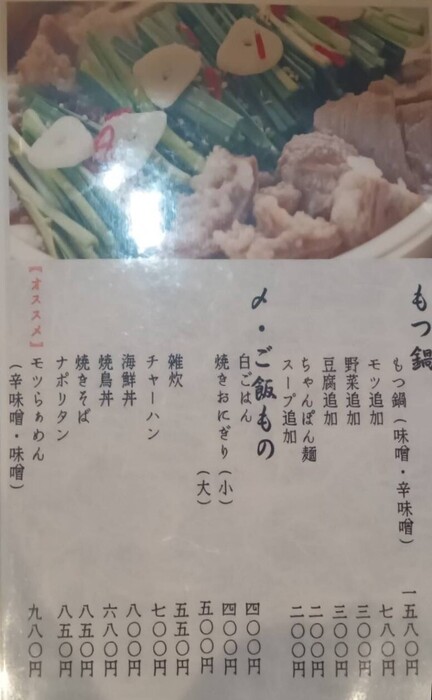 もつ鍋
もつ鍋（味噌・辛味噌） 一五八〇円
モツ追加 七八〇円
野菜追加 三〇〇円
豆腐追加 三〇〇円
ちゃんぽん麺 二〇〇円
スープ追加 二〇〇円
〆・ご飯もの
白ごはん 四〇〇円
焼きおにぎり（小） 四〇〇円
（大） 五〇〇円
雑炊 五五〇円
チャーハン 七〇〇円
海鮮丼 八〇〇円
焼鳥丼 六八〇円
焼きそば 八五〇円
ナポリタン 八五〇円
【オススメ】モツらぁめん 九八〇円
（辛味噌・味噌）